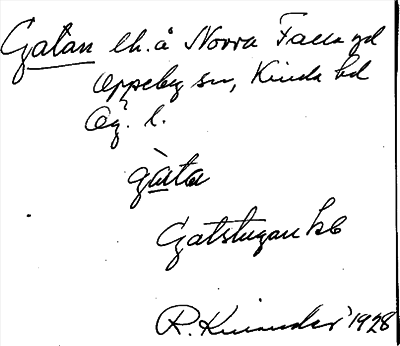 Gatan lh. å Norra Falla gd
Oppeby sn, Kinda hd
Ög. l.
gàta
Gatstugan kb
R. Kinander 1928